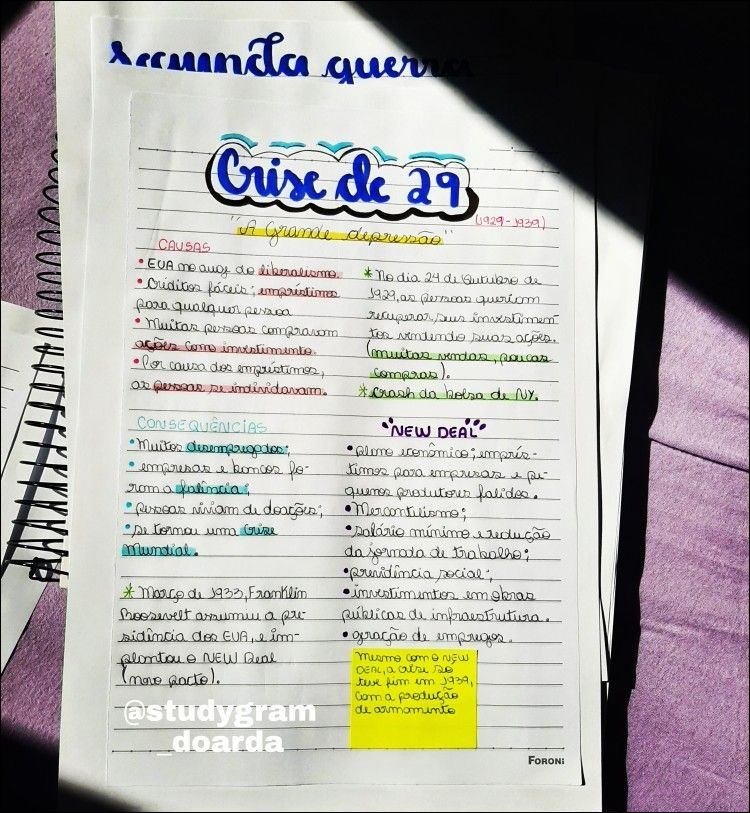 Segunda guerra
Crise de 29
(1929-1939)
"A Grande depressão"
CAUSAS
• EUA no auge do liberalismo.
• Créditos fáceis; empréstimos
para qualquer pessoa
• Muitas pessoas compravam
ações como investimento.
• Por causa dos empréstimos,
as pessoas se individavam.
* No dia 24 de Outubro de
1929, as pessoas queriam
recuperar seus investimen
tos vendendo suas ações.
(muitas vendas, poucas
compras).
* Crash da bolsa de NY.
CONSEQUÊNCIAS
• Muitos desempregados;
• empresas e bancos fo-
ram a falência;
• pessoas viviam de doações;
• se tornou uma Crise
Mundial.
* Março de 1933, Franklin
Roosevelt assumiu a pre
sidência dos EUA, e im-
plantou o NEW Deal
(novo pacto).
"NEW DEAL"
• plano econômico; emprés-
timos para empresas e pe
quenos produtores falidos.
• Mercantuismo;
• salário mínimo e redução
da jornada de trabalho;
• previdência social;
• investimentos em obras
públicas de infraestrutura.
• geração de empregos.
Mesmo com o NEW
DEAL, a crise só
teve fim em 1939,
com a produção
de armamento
@studygram
_doarda
FORONI